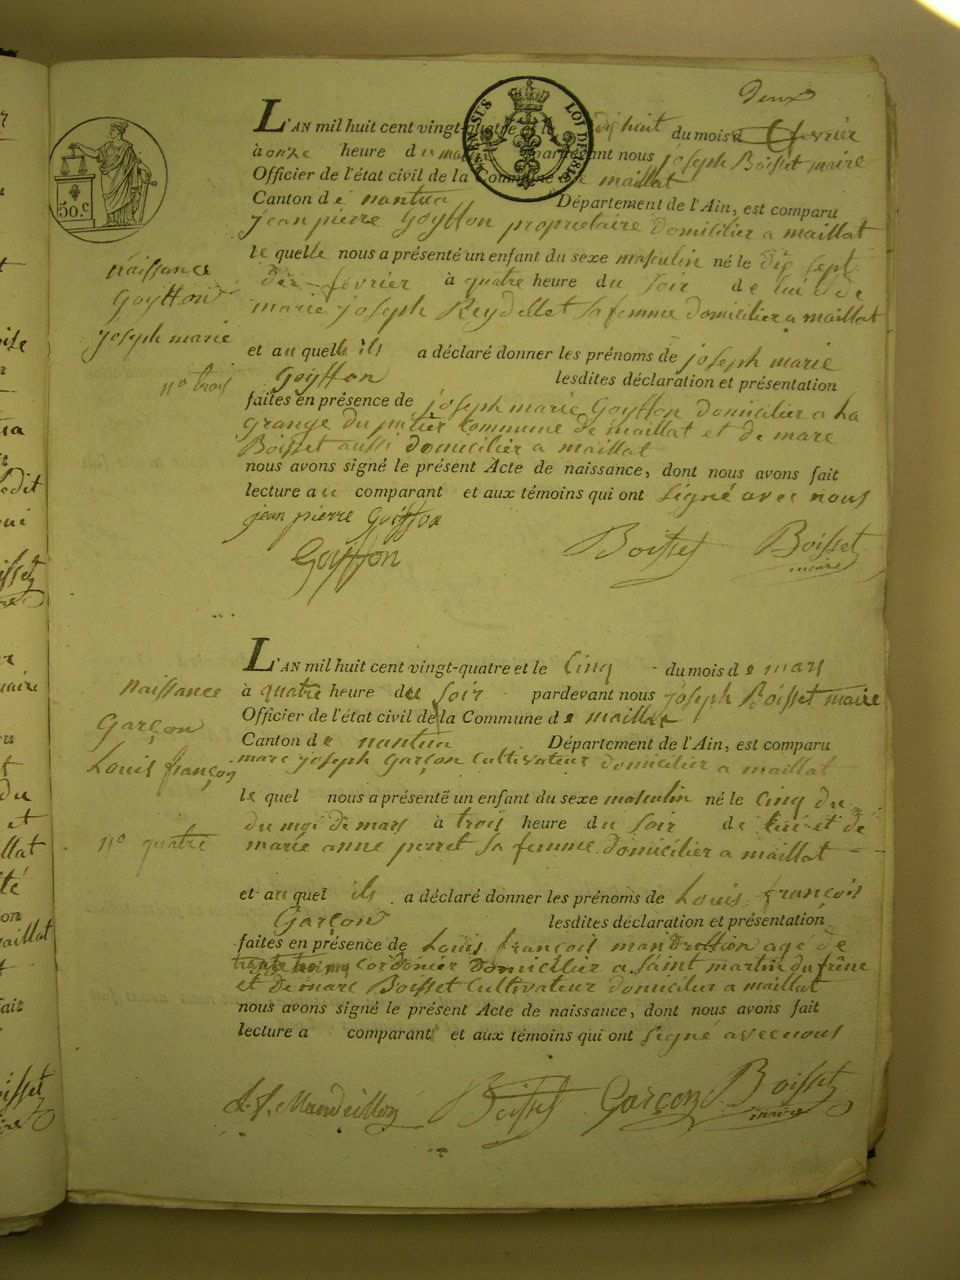 Deux
L'AN mil huit cent vingt-quatre et le dix huit du mois de février
à onze heure du matin pardevant nous joseph Boisset maire
Officier de l'état civil de la Commune de maillat
Canton de nantua Département de l'Ain, est comparu
jean pierre Goyffon proprietaire domicilier a maillat
le quelle nous a présenté un enfant du sexe masculin né le dix sept
de février à quatre heure du soir de lui et de
marie joseph Reydellet sa femme domicilier a maillat
et au quelle ils a déclaré donner les prénoms de joseph marie
Goyffon lesdites déclaration et présentation
faites en présence de joseph marie Goyffon domicilier a La
grange du commune de maillat et de marc
Boisset aussi domicilier a maillat
nous avons signé le présent Acte de naissance, dont nous avons fait
lecture a u comparant et aux témoins qui ont signé avec nous
jean pierre Goiffon
Goyffon Boisset Boisset
maire
50.c
SENSUS LOI DE 816
naissance
Goyffon
joseph marie
n° trois
L'AN mil huit cent vingt-quatre et le Cinq du mois de mars
à quatre heure du soir pardevant nous joseph Boisset maire
Officier de l'état civil de la Commune de maillat
Canton de nantua Département de l'Ain, est comparu
marc joseph Garçon Cultivateur domicilier a maillat
le quel nous a présenté un enfant du sexe masculin né le Cinq du
du moi de mars à trois heure du soir de lui et de
marie anne perret sa femme domicilier a maillat
et au quel ils a déclaré donner les prénoms de Louis françois
Garçon lesdites déclaration et présentation
faites en présence de Louis françois agé de
cordonier domicilier a saint martin du frêne
et de marc Boisset Cultivateur domicilier a maillat
nous avons signé le présent Acte de naissance, dont nous avons fait
lecture a comparant et aux témoins qui ont signé avec nous
L. f. Mandrillon Boisset Garçon Boisset
maire
naissance
Garçon
Louis françois
n° quatre